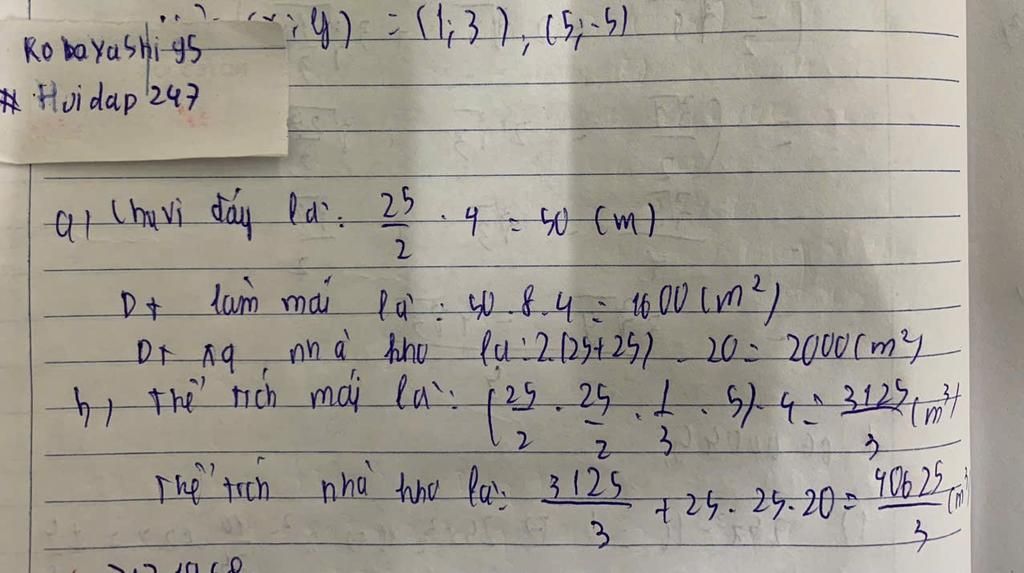 ; y) = (1; 3), (5; -5)
Kobayashi 95
# Hoidap 247
a, Chu vi đáy là: 25/2 . 4 = 50 (m)
D+ làm mái là: 50 . 8 . 4 = 1600 (m²)
D+ xq nhà kho là: 2.(25+25) . 20 = 2000 (m²)
b, Thể tích mái là: (25/2 . 25/2 . 1/3 . 5) . 4 = 3125/3 (m³)
Thể tích nhà kho là: 3125/3 + 25 . 25 . 20 = 40625/3 (m³